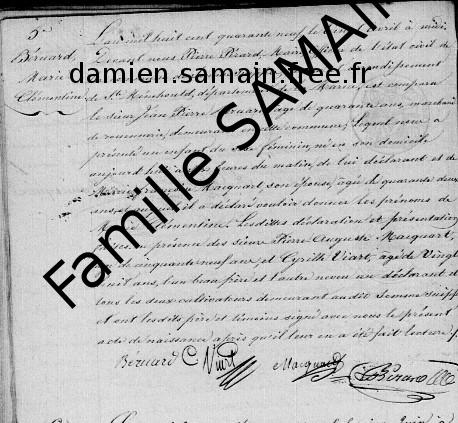 5e
Béruard
Marie
Clémentine
L'an mil huit cent quarante neuf le avril à midi
Devant nous Pierre Pérard Maire de l'état civil de
de Ste Menehould, département de la Marne, est comparu
le sieur Jean Pierre âgé de quarante ans, marchand
de rouennerie, demeurant en cette commune, lequel nous a
présenté un enfant du sexe féminin, né en son domicile
aujourd'hui à heures du matin, de lui déclarant et de
Macquart, son épouse, âgée de quarante deux
ans, et a déclaré vouloir donner les prénoms de
Marie Clémentine. Lesdites déclaration et présentation
faites en présence des sieurs Pierre Auguste Macquart,
de cinquante neuf ans et Cyrille Viart, âgé de Vingt
huit ans, l'un beau père et l'autre neveu du déclarant et
tous les deux cultivateurs demeurant audit Somme Suippe
et ont lesdits père et témoins signé avec nous le présent
acte de naissance après qu'il leur en a été fait lecture
Béruard C Viart Macquart Pérard
damien.samain.free.fr
Famille SAMAIN